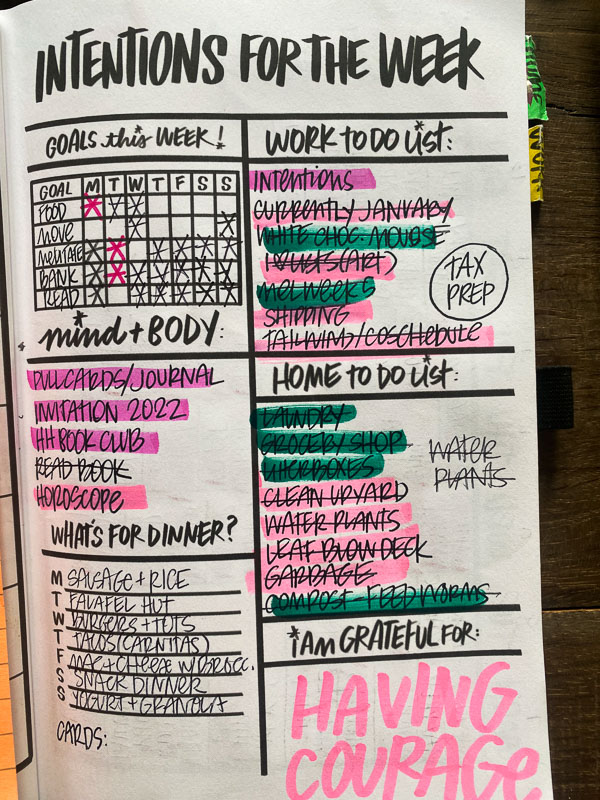 INTENTIONS FOR THE WEEK
GOALS this WEEK!
GOAL M T W T F S S
FOOD
MOVE
MEDITATE
BANK
READ
mind + BODY:
PULL CARDS/JOURNAL
INVITATION 2022
HH BOOK CLUB
READ BOOK
HOROSCOPE
WHAT'S FOR DINNER?
M SAUSAGE + RICE
T FALAFEL HUT
W BURGERS + TOTS
T TACOS (CARNITAS)
F MAC + CHEESE W/BROCC.
S SNACK DINNER
S YOGURT + GRANOLA
CARDS:
WORK TO DO LIST:
INTENTIONS
CURRENTLY JANUARY
WHITE CHOC. MOUSSE
(ART)
SHIPPING
TAILWIND/COSCHEDULE
TAX
PREP
HOME TO DO LIST:
LAUNDRY
GROCERY SHOP
CLEAN UP YARD
WATER PLANTS
LEAF BLOW DECK
GARBAGE
COMPOST - FEED WORMS
WATER
PLANTS
i AM GRATEFUL FOR:
HAVING
COURAGE